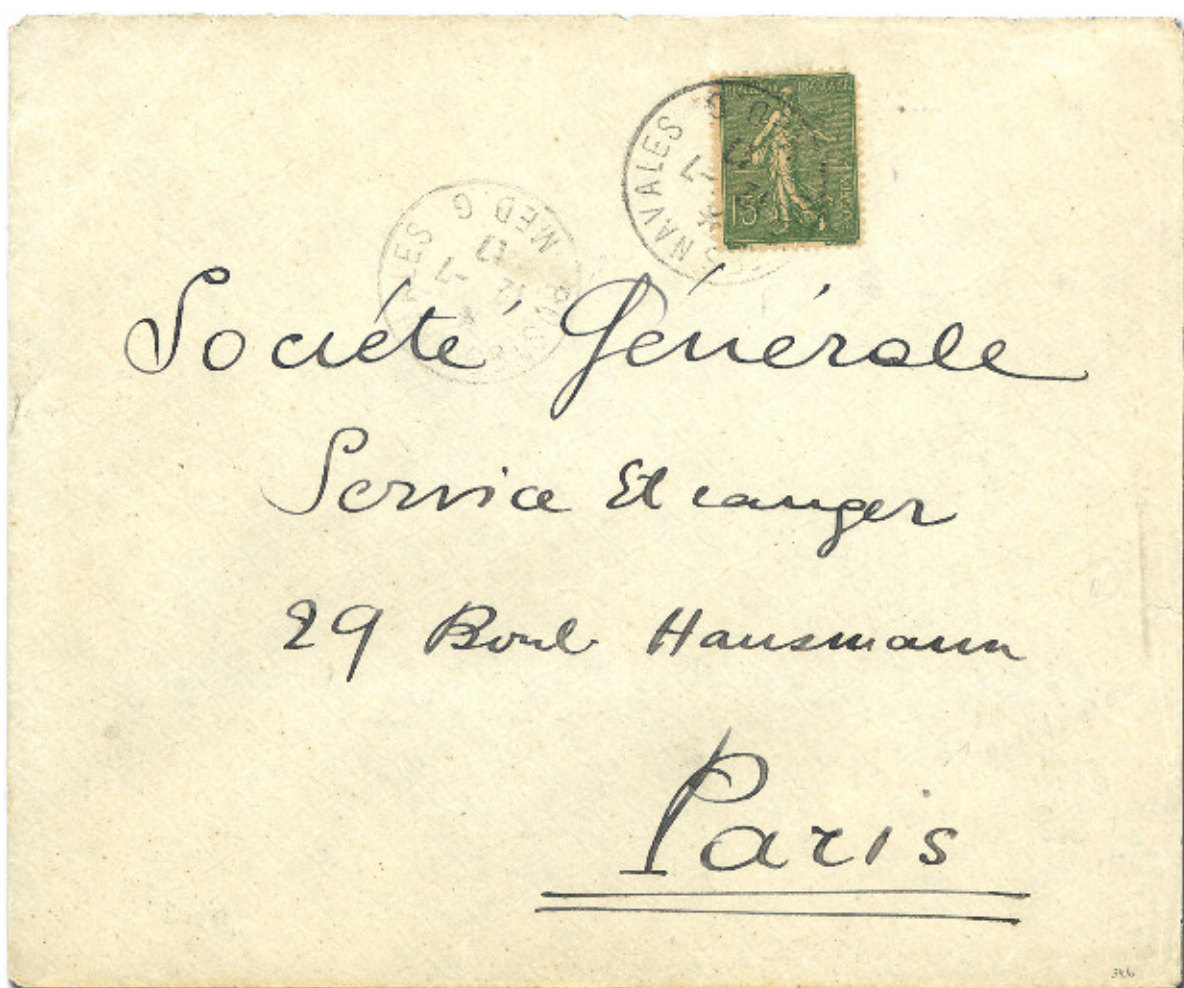 NAVALES
15
MED G
Société Générale
Service Etranger
29 Boul Hausmann
Paris